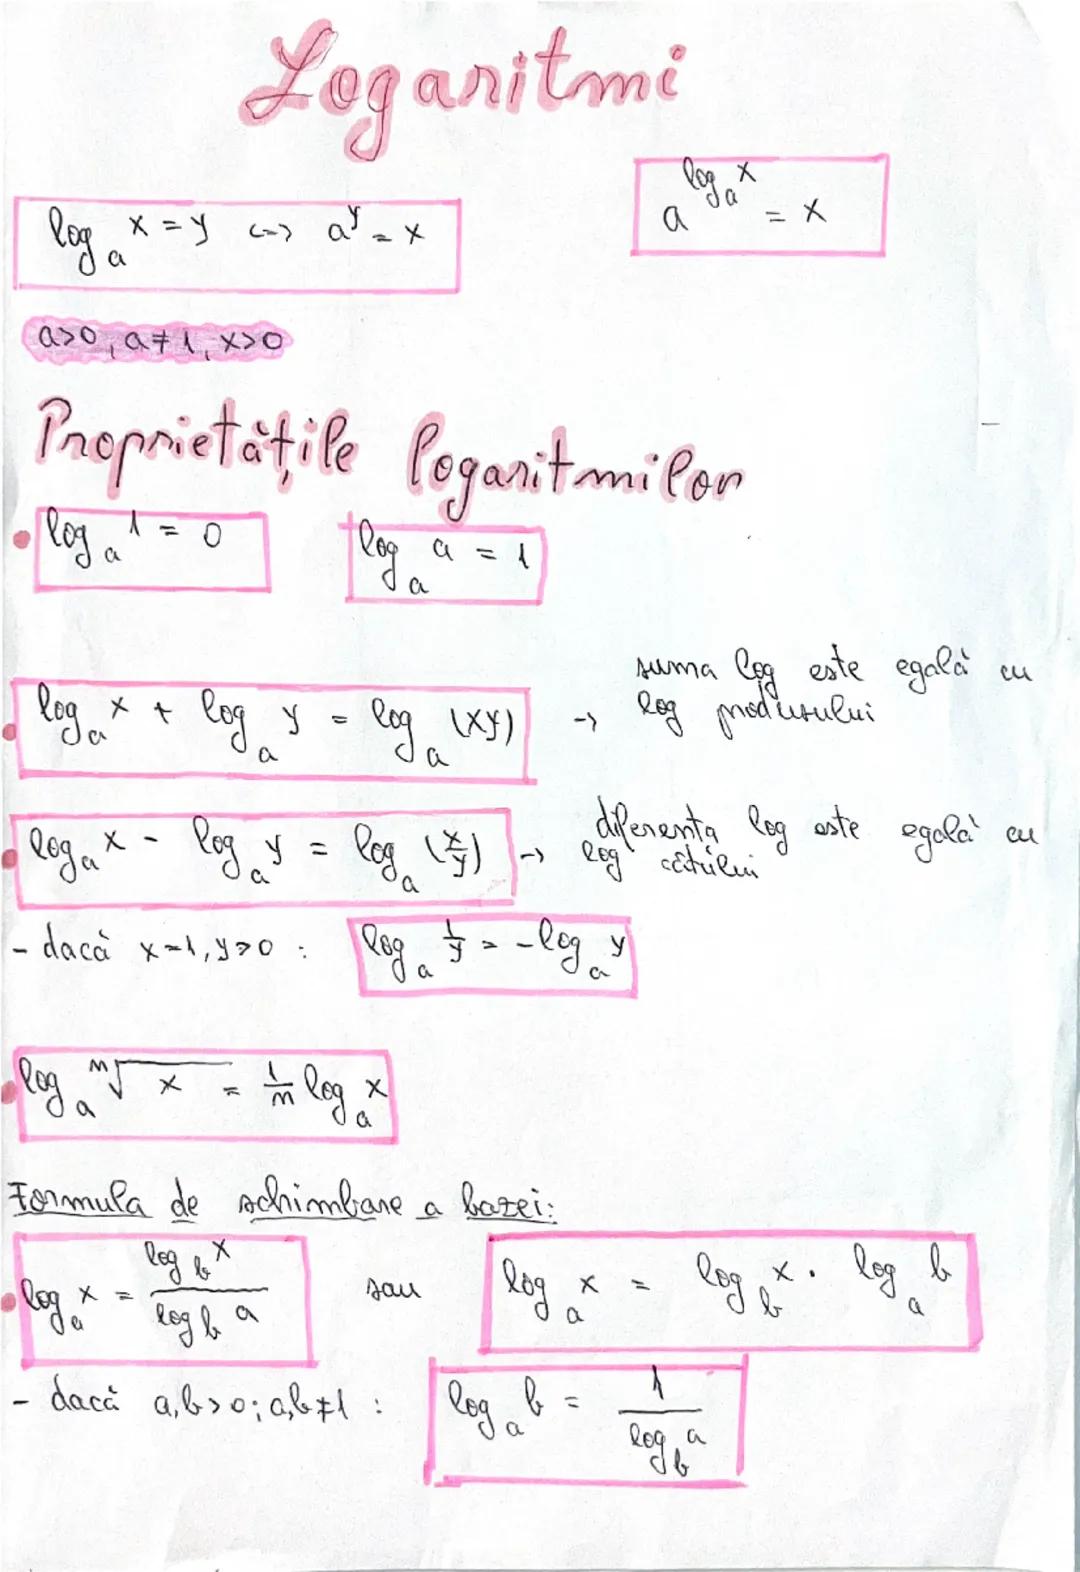 Logaritmi
log_a x = y <=> a^y = x
a^(log_a x) = x
a>0, a≠1, x>0
Proprietățile logaritmilor
log_a 1 = 0
log_a a = 1
log_a x + log_a y = log_a (xy) -> suma log este egală cu
log produsului
log_a x - log_a y = log_a (x/y) -> diferența log este egală cu
log câtului
- dacă x=1, y>0 : log_a 1/y = -log_a y
log_a ᵐ√x = 1/m log_a x
Formula de schimbare a bazei:
log_a x = log_b x / log_b a sau log_a x = log_b x · log_a b
- dacă a,b>0; a,b≠1 : log_a b = 1 / log_b a